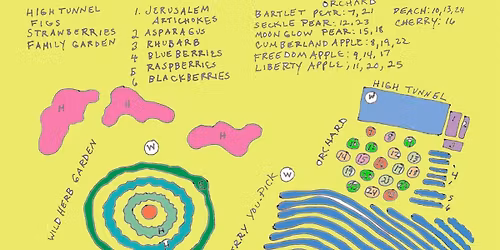 HIGH TUNNEL
FIGS
STRAWBERRIES
FAMILY GARDEN
1. JERUSALEM
ARTICHOKES
2 ASPARAGUS
3 RHUBARB
4 BLUEBERRIES
5 RASPBERRIES
6 BLACKBERRIES
ORCHARD
BARTLET PEAR: 7, 21
SECKLE PEAR: 12, 23
MOON GLOW PEAR: 15, 18
CUMBERLAND APPLE: 8, 19, 22
FREEDOM APPLE: 9, 14, 17
LIBERTY APPLE, 11, 20, 25
PEACH: 10, 13, 24
CHERRY: 16
HIGH TUNNEL
W
H
H
H
W
ORCHARD
WILD HERB GARDEN
W
RRY YOU-PICK
H